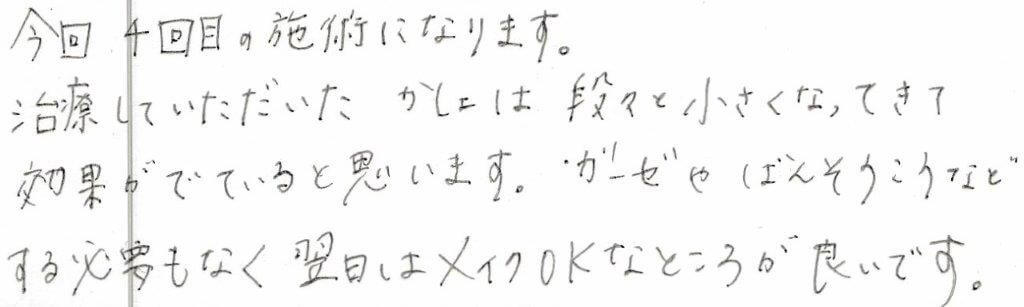 今回 4回目の施術になります。
治療していただいた かしょは 段々と小さくなってきて
効果がでていると思います。ガーゼや ばんそうこうなど
する必要もなく 翌日はメイクOKなところが 良いです。